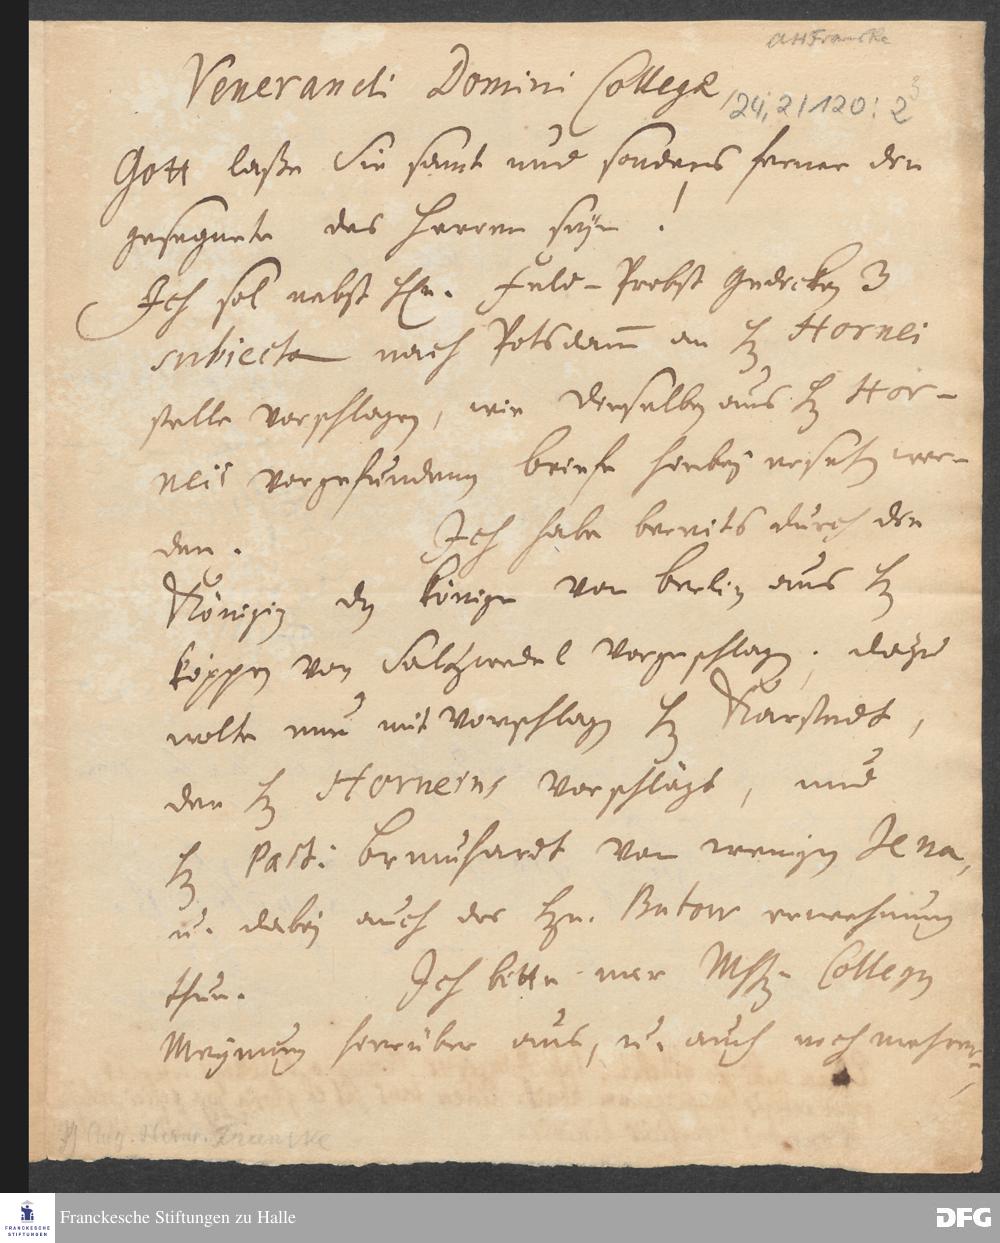 AHFrancke
Venerandi Domini Collegæ,
24,2/120:2
3
Gott laße Sie samt und sonders ferner den
gesegnete des Herren seyn!
Ich sol nebst HEn. Feld-Probst Gedicken 3
subiecta nach Potsdam an H Hornei
stelle vorschlagen, wie denselben aus H Hor-
neis vorgefundenen briefe hierbey ersehen wer-
den. Ich habe bereits durch den
Königin den Könige von berlin aus H
Köppen von Saltzwedel vorgeschlagen. dazu
wolte nun mit vorschlagen H Karstedt,
den H Horneius vorschlägt, und
H Past: Bernhardt von wenigen Jena,
u. dabey auch des Hn. Butow erwehnung
thun. Ich bitte mer Collegen
Meynung hierüber aus, u. auch noch mehrer
Aug. Herm. Francke
Franckesche Stiftungen zu Halle
FRANCKESCHE
STIFTUNGEN
DFG